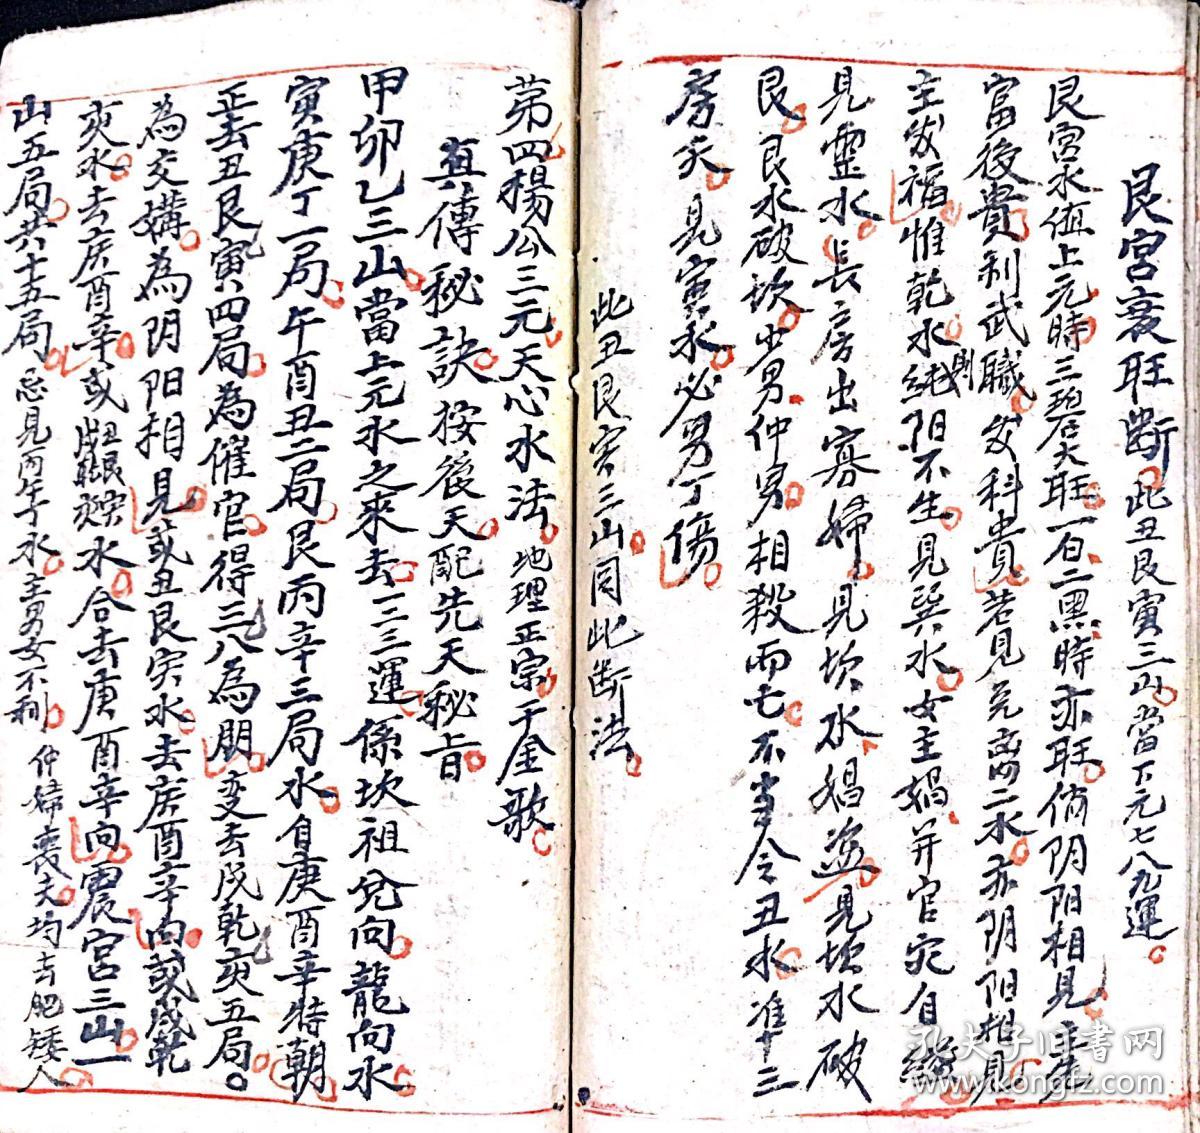 艮宮衰旺斷 此丑艮寅三山當下元七八九運
艮宮水值上元時三碧居大旺一白二黑時亦旺俏阴阳相見主
富後貴利武職則發科貴若見兑离二水亦阴阳相見
主发福惟乾水純阳不生見巽水女主娼并官宛自縊
見靈水長房出寡婦見坎水娼盗見坎水破
艮艮水破坎少男仲男相殺而七不当令丑水准十三
房夭見寅水必男丁傷
此丑艮寅三山同此断法
苐四楊公三元天心水法地理正宗千金歌
真傳秘訣按後天配先天秘旨
甲卯乙三山當上元水之來去一二三運係坎祖兌向龍向水
寅庚丁一局午酉丑二局艮丙辛三局水自庚酉辛特朝
正去丑艮寅四局為催官得三八為朋变去戌乾亥五局
為交媾為阴阳相見或丑艮寅水去庚酉辛向或戌乾
亥水去庚酉辛或水合去庚酉辛向震宮三山一
山五局共十五局忌見丙午水主男女不利仲婦喪夫均去肥矮人
孔夫子旧书网
kongfz.com